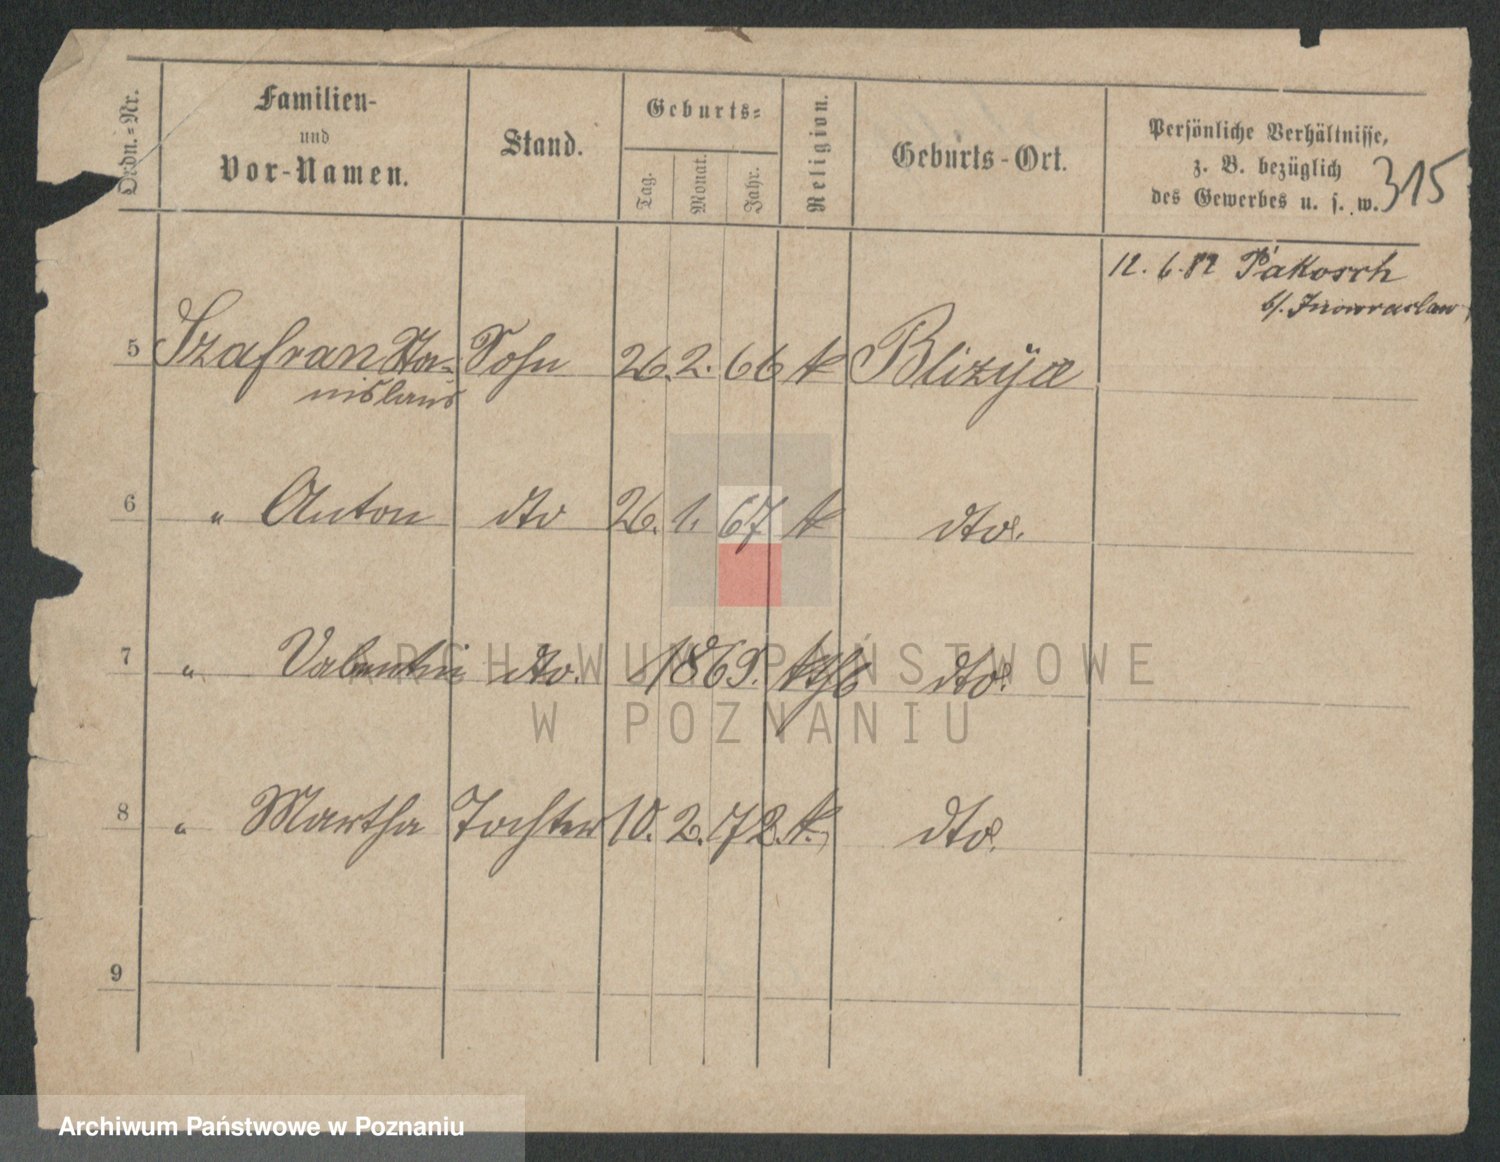 Ordn.-Nr.
Familien-
und
Vor-Namen.
Stand.
Geburts-
Tag.
Monat.
Jahr.
Religion.
Geburts-Ort.
Persönliche Verhältnisse,
z. B. bezüglich
des Gewerbes u. s. w.
315
12. 6. 82 Pakosch
b/. Inowraclaw
5 Szafran Sta- Sohn 26. 2. 66 k Blizÿce
nislaus
6 " Anton dto 26. 1. 67 k dto.
7 " Valentin dto. 1869. kth dto.
8 " Martha Tochter 10. 2. 72. k. dto.
9
ARCHIWUM PAŃSTWOWE
W POZNANIU
Archiwum Państwowe w Poznaniu